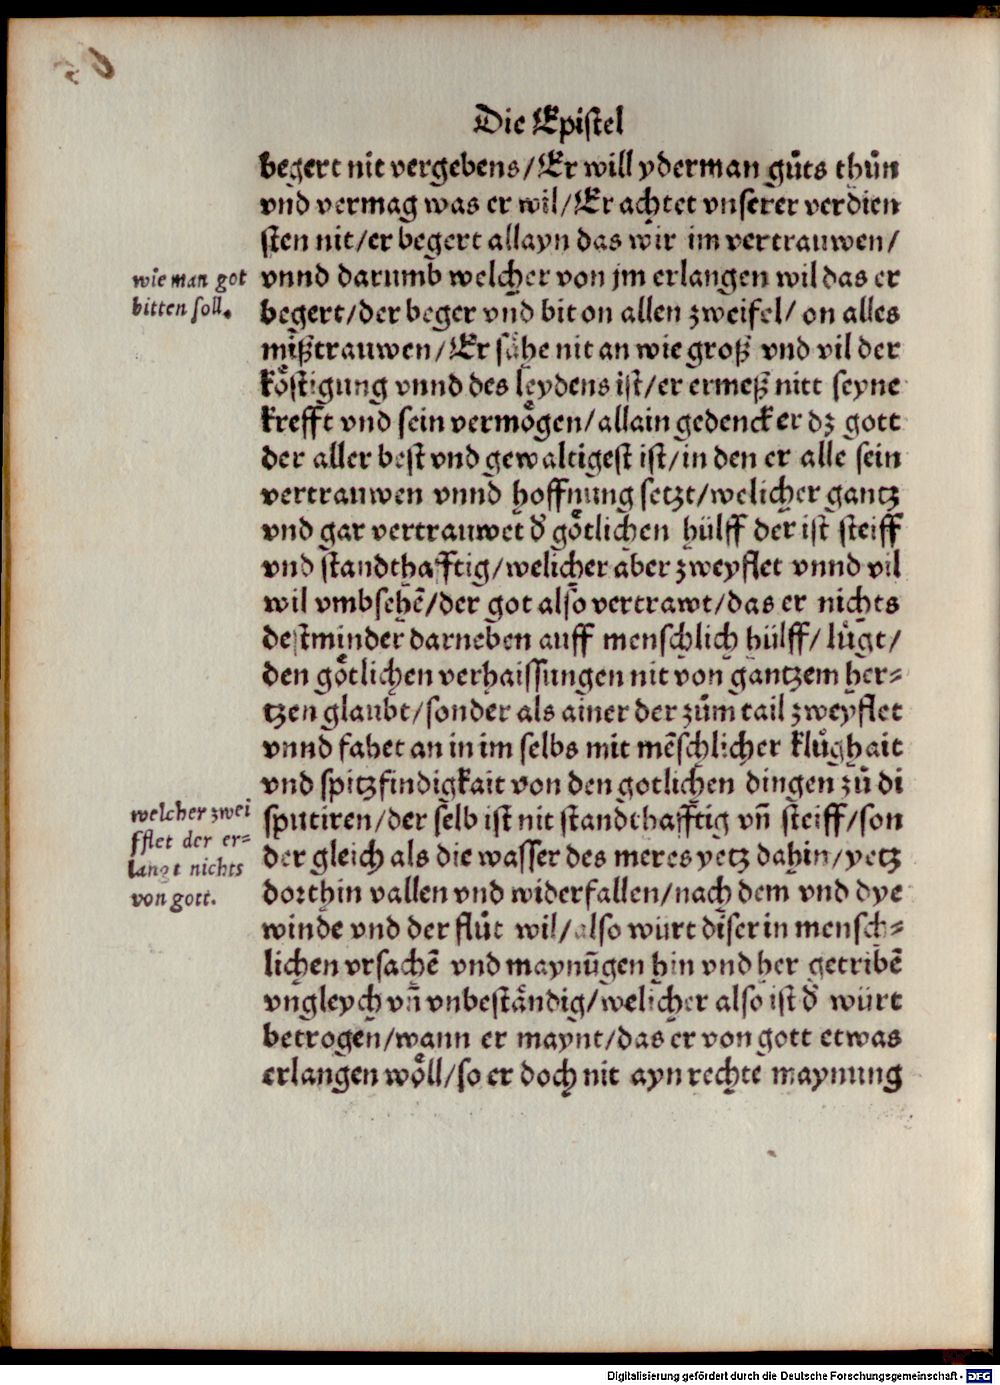 Die Epistel
begert nit vergebens/Er will yderman gůts thůn
vnd vermag was er wil/Er achtet vnserer verdien
sten nit/er begert allayn das wir im vertrauwen/
wie man got
bitten soll.
vnnd darumb welcher von jm erlangen wil das er
begert/der beger vnd bit on allen zweifel/ on alles
mißtrauwen/Er sähe nit an wie groß vnd vil der
köstigung vnnd des leydens ist/er ermeß nitt seyne
krefft vnd sein vermögen/allain gedenck er dz gott
der aller best vnd gewaltigest ist/in den er alle sein
vertrauwen vnnd hoffnung setzt/welicher gantz
vnd gar vertrauwet d̓ götlichen hülff der ist steiff
vnd standthafftig/welicher aber zweyflet vnnd vil
wil vmbsehē/der got also vertrawt/das er nichts
destminder darneben auff menschlich hülff/ lůgt/
den götlichen verhaissungen nit von gantzem her=
tzen glaubt/sonder als ainer der zům tail zweyflet
vnnd fahet an in im selbs mit mēschlicher klůghait
vnd spitzfindigkait von den gotlichen dingen zů di
welcher zwei
fflet der er=
langt nichts
von gott.
sputiren/der selb ist nit standthafftig vñ steiff/son
der gleich als die wasser des meres yetz dahin/yetz
dorthin vallen vnd widerfallen/nach dem vnd dye
winde vnd der flůt wil/also würt diser in mensch=
lichen vrsachē vnd maynūgen hin vnd her getribē
vngleych vñ vnbeständig/welicher also ist d̓ würt
betrogen/wann er maynt/das er von gott etwas
erlangen wöll/so er doch nit ayn rechte maynung
Digitalisierung gefördert durch die Deutsche Forschungsgemeinschaft - DFG